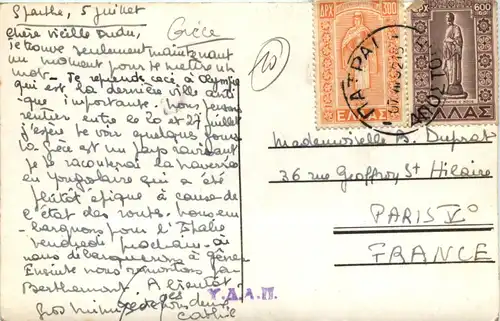 Sparthe, 5 juillet
Grèce
Chère vieille Dudu,
je trouve seulement maintenant
un moment pour te mettre un
mot. Je reprends ceci à Olympie
qui est la dernière ville anti-
que importante. Nous pensons
rentrer entre le 20 et 27 juillet
j'espère te voir quelques jours
La Grèce est un pays ravissant
je te raconterai la traversée
en Yougoslavie qui a été
plutôt épique à cause de
l'état des routes. Nous em-
barquons pour l'Italie
vendredi prochain où
nous débarquerons à Gênes
Ensuite nous remontons par
Berthemont. A bientôt
Gros
deux
Cathie
20
ΔΡΧ 300
ΕΛΛΑΣ
ΔΡΧ 600
ΕΛΛΑΣ
ΠΑΤΡΑΙ
Mademoiselle D. Duprat
36 rue Geoffroy St Hilaire
PARIS Vº
FRANCE
Υ.Δ.Α.Π.